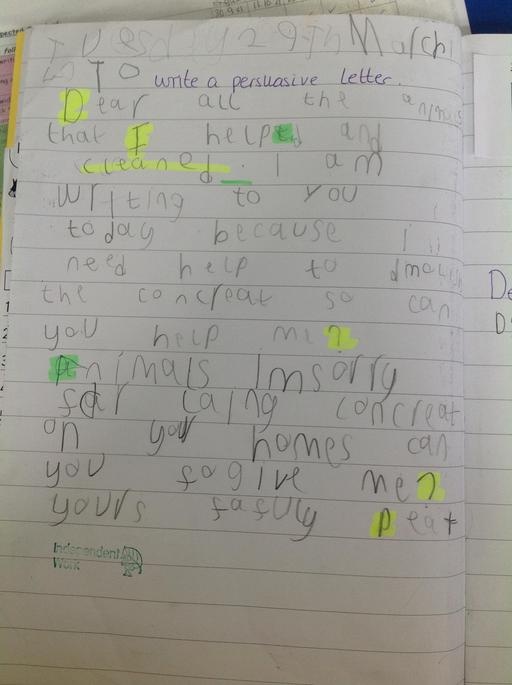 Tuesday 29th March
LO TO write a persuasive letter.
Dear all the animals
that I helpted and
cleaned. I am
writing to you
today because I
need help to
the concreat so can
you help me?
Animals Imsorry
for laing concreat
on your homes can
you fogive me?
yours fafuly Peat
Independent
Work